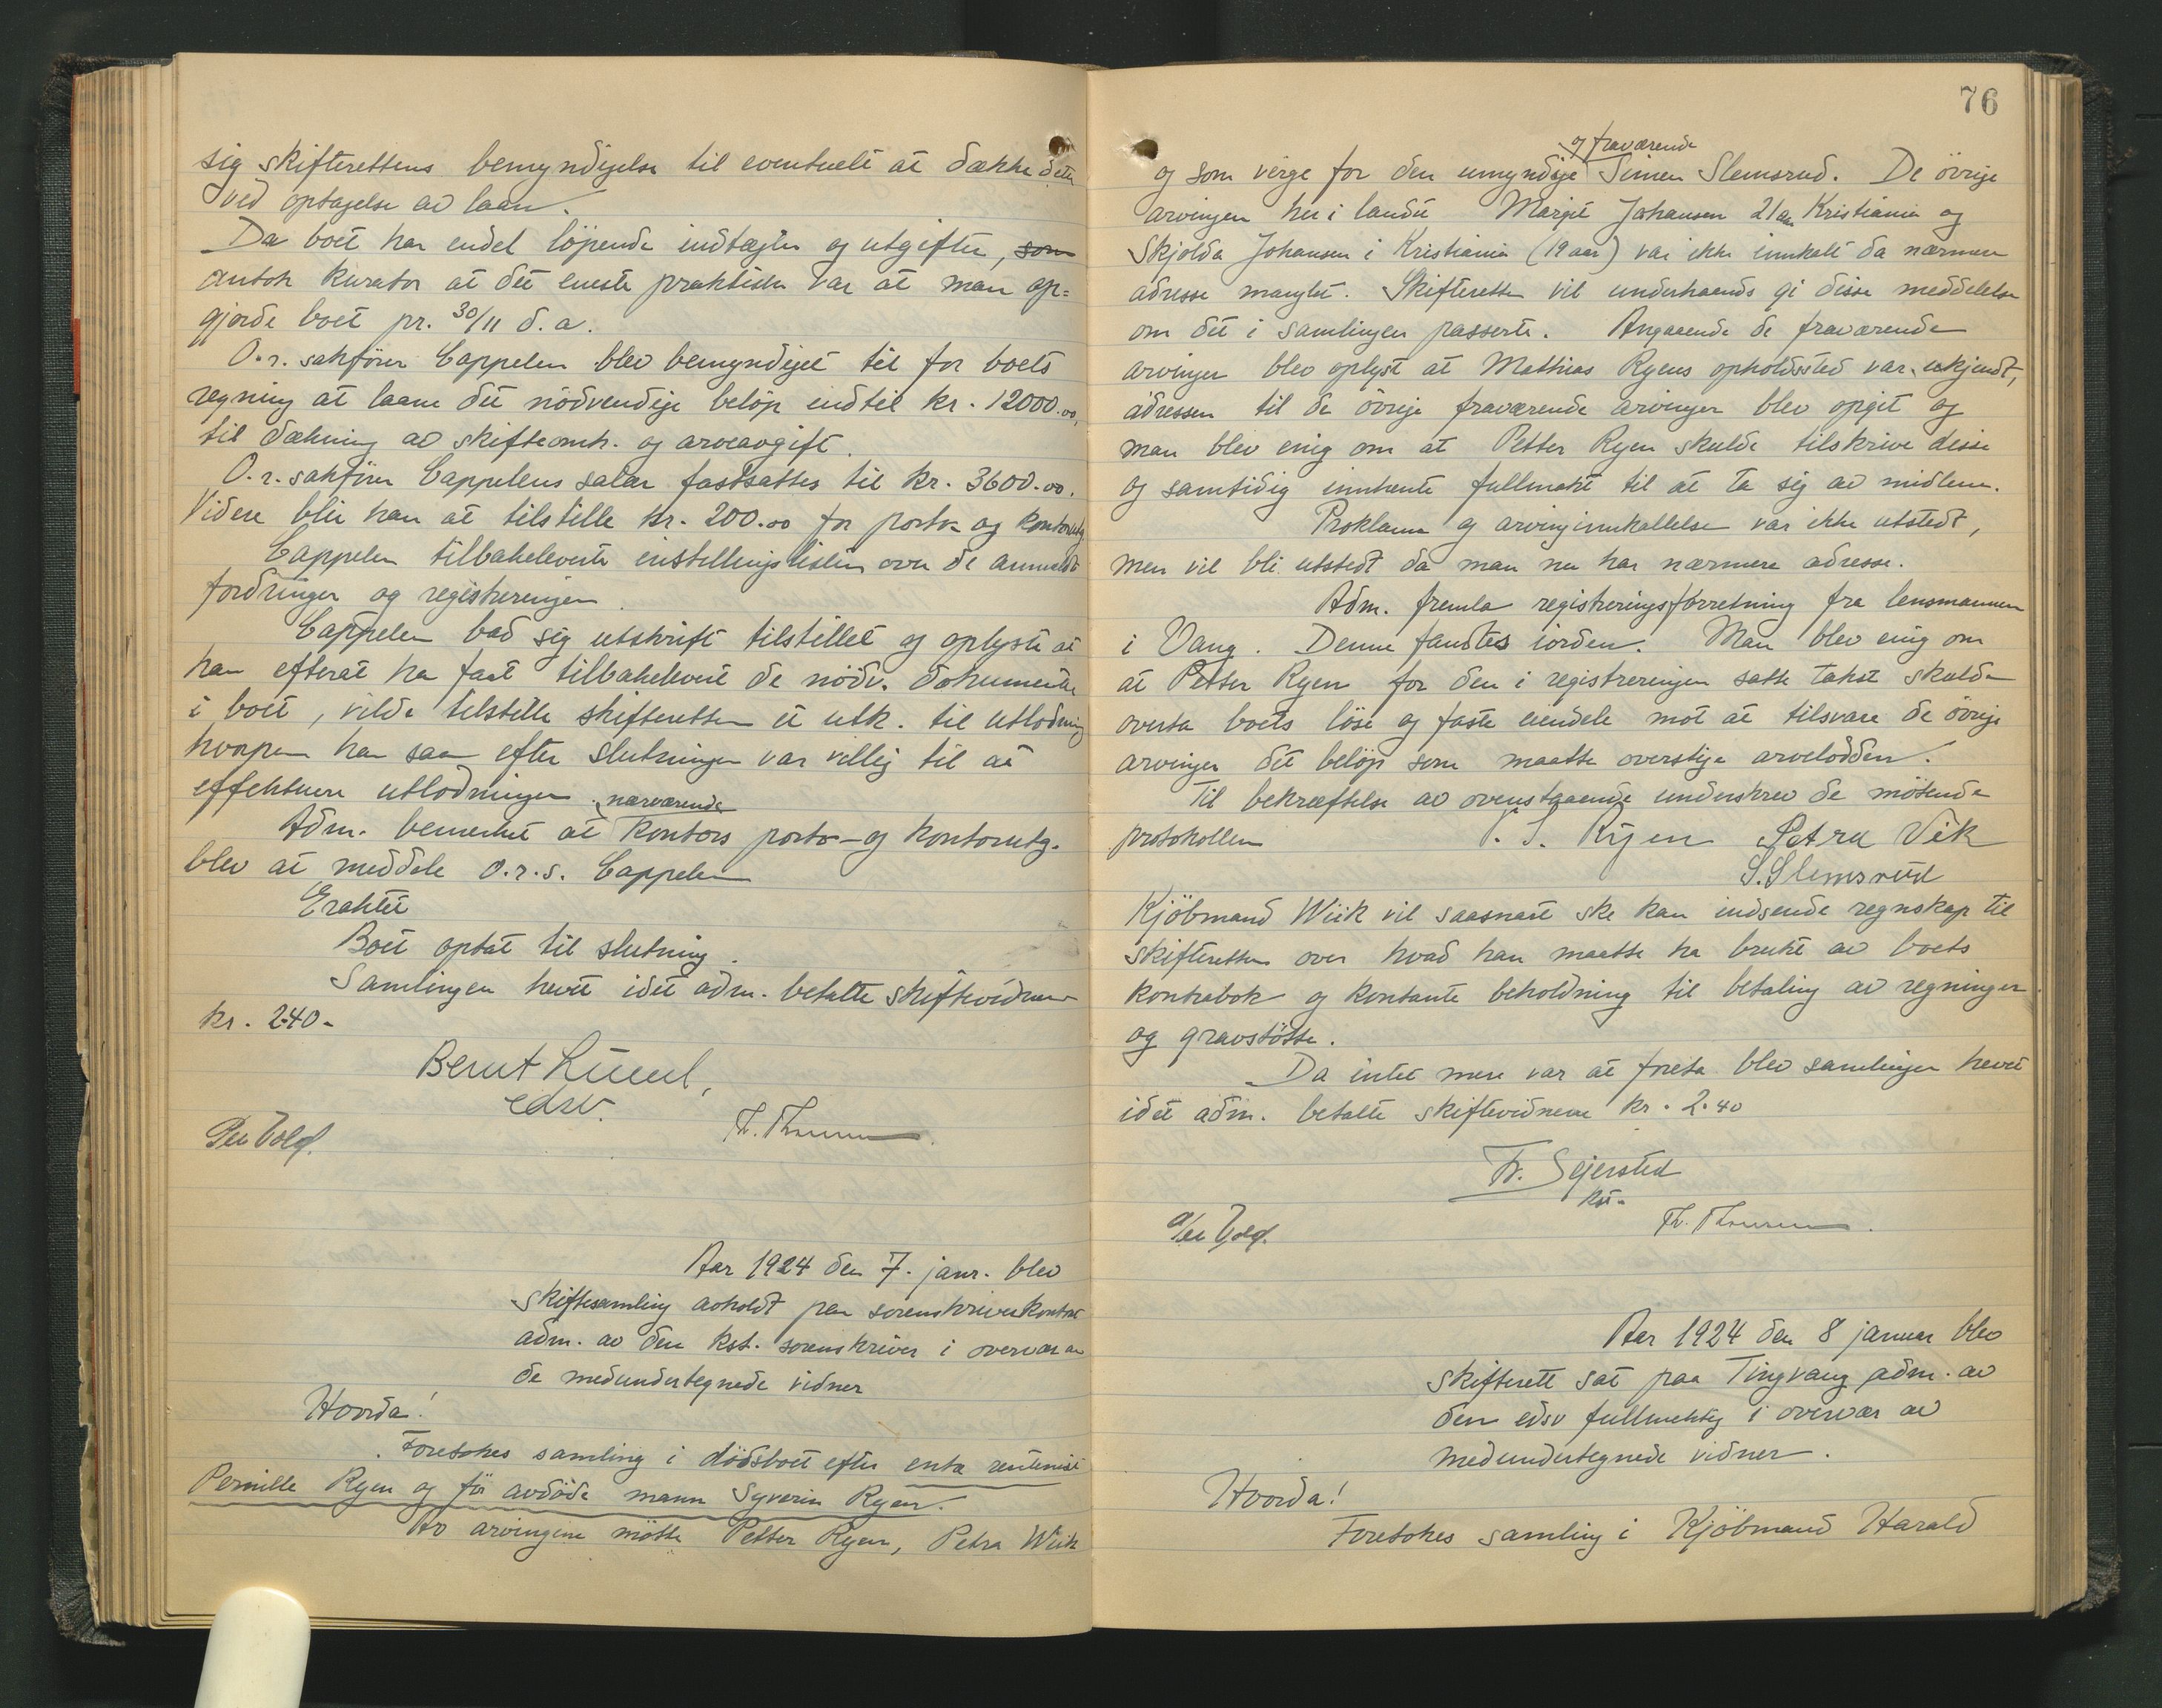 sig skifterettens bemyndigelse til eventuelt at dække dette
ved optagelse av laan.
Da boet har endel löpende indtægter og utgifter, som
antok kurator at det eneste praktiske var at man op=
gjorde boet pr. 30/11 d.a.
O.r.sakförer Cappelen blev bemyndiget til for boets
regning at laane det nödvendige belöp indtil kr. 12000.00,
til dækning av skifteomk. og arveavgift.
O.r.sakförer Cappelens salær fastsattes til kr. 3600.00.
Videre blir han at tilstille kr. 200.00 for porto og kontorutg
Cappelen tilbakeleverte instillingslisten over de anmeldte
fordringer og registreringen.
Cappelen bad sig utskrift tilstillet og oplyste at
han efterat ha faat tilbakelevert de nödv. dokumenter
i boet, vilde tilstille skifteretten et utk. til utlodning
hvorpaa han saa efter slutningen var villig til at
effektuere utlodningen.
nærværende
Adm. bemerket at kontors porto- og kontorutg.
blev at meddele O.r.s. Cappelen
Eraktet
Boet optat til slutning.
Samlingen hevet idet adm. betalte skiftevidnene
kr. 2.40.
Bernt Lund,
edsv.
Per Volf.
Th. Thoresen.
Aar 1924 den 7. janr. blev
skiftesamling avholdt paa sorenskriverkontoret
adm. av den kst. sorenskriver i overvær av
de medundertegnede vidner
Hvorda!
Foretokes samling i dödsboet efter enke rentenist
Pernille Ryen og för avdöde mann Syverin Ryen.
Av arvingene mötte Petter Ryen, Petra Wiik
76
og fraværende
og som verge for den umyndige Simen Slemsrud. De övrige
arvinger her i landet Margit Johansen 21 aar Kristiania og
Skjolda Johansen i Kristiania (19 aar) var ikke innkalt da nærmere
adresse manglet. Skifteretten vil underhaands gi disse meddelelse
om det i samlingen passerte. Angaaende de fraværende
arvinger blev oplyst at Mathias Ryens opholdssted var ukjendt,
adressen til de övrige fraværende arvinger blev opgit og
man blev enig om at Petter Ryen skulde tilskrive disse
og samtidig innhente fullmakt til at ta sig av midlene.
Proklama og arvinginnkallelse var ikke utstedt,
men vil bli utstedt da man nu har nærmere adresse.
Adm. fremla registreringsforretning fra lensmannen
i Vang. Denne fandtes iorden. Man blev enig om
at Petter Ryen for den i registreringen satte takst skulde
overta boets löse og faste eiendele mot at tilsvare de övrige
arvinger det belöp som maatte overstige arvelodden.
Til bekræftelse av ovenstaaende underskrev de mötende
protokollen
P. S. Ryen Petra Vik
S. Slemsrud
Kjöbmand Wiik vil saasnart ske kan indsende regnskap til
skifteretten over hvad han maatte ha brukt av boets
kontrabok og kontante beholdning til betaling av regninger
og gravstötte.
Da intet mere var at foreta blev samlingen hevet
idet adm. betalte skiftevidnene kr. 2.40
Fr. Sejersted
kst.
Per Volf.
Th. Thoresen.
Aar 1924 den 8 januar blev
skifterett sat paa Tingvang adm. av
den edsv fullmektig i overvær av
medundertegnede vidner.
Hvorda!
Foretokes samling i Kjöbmand Harald